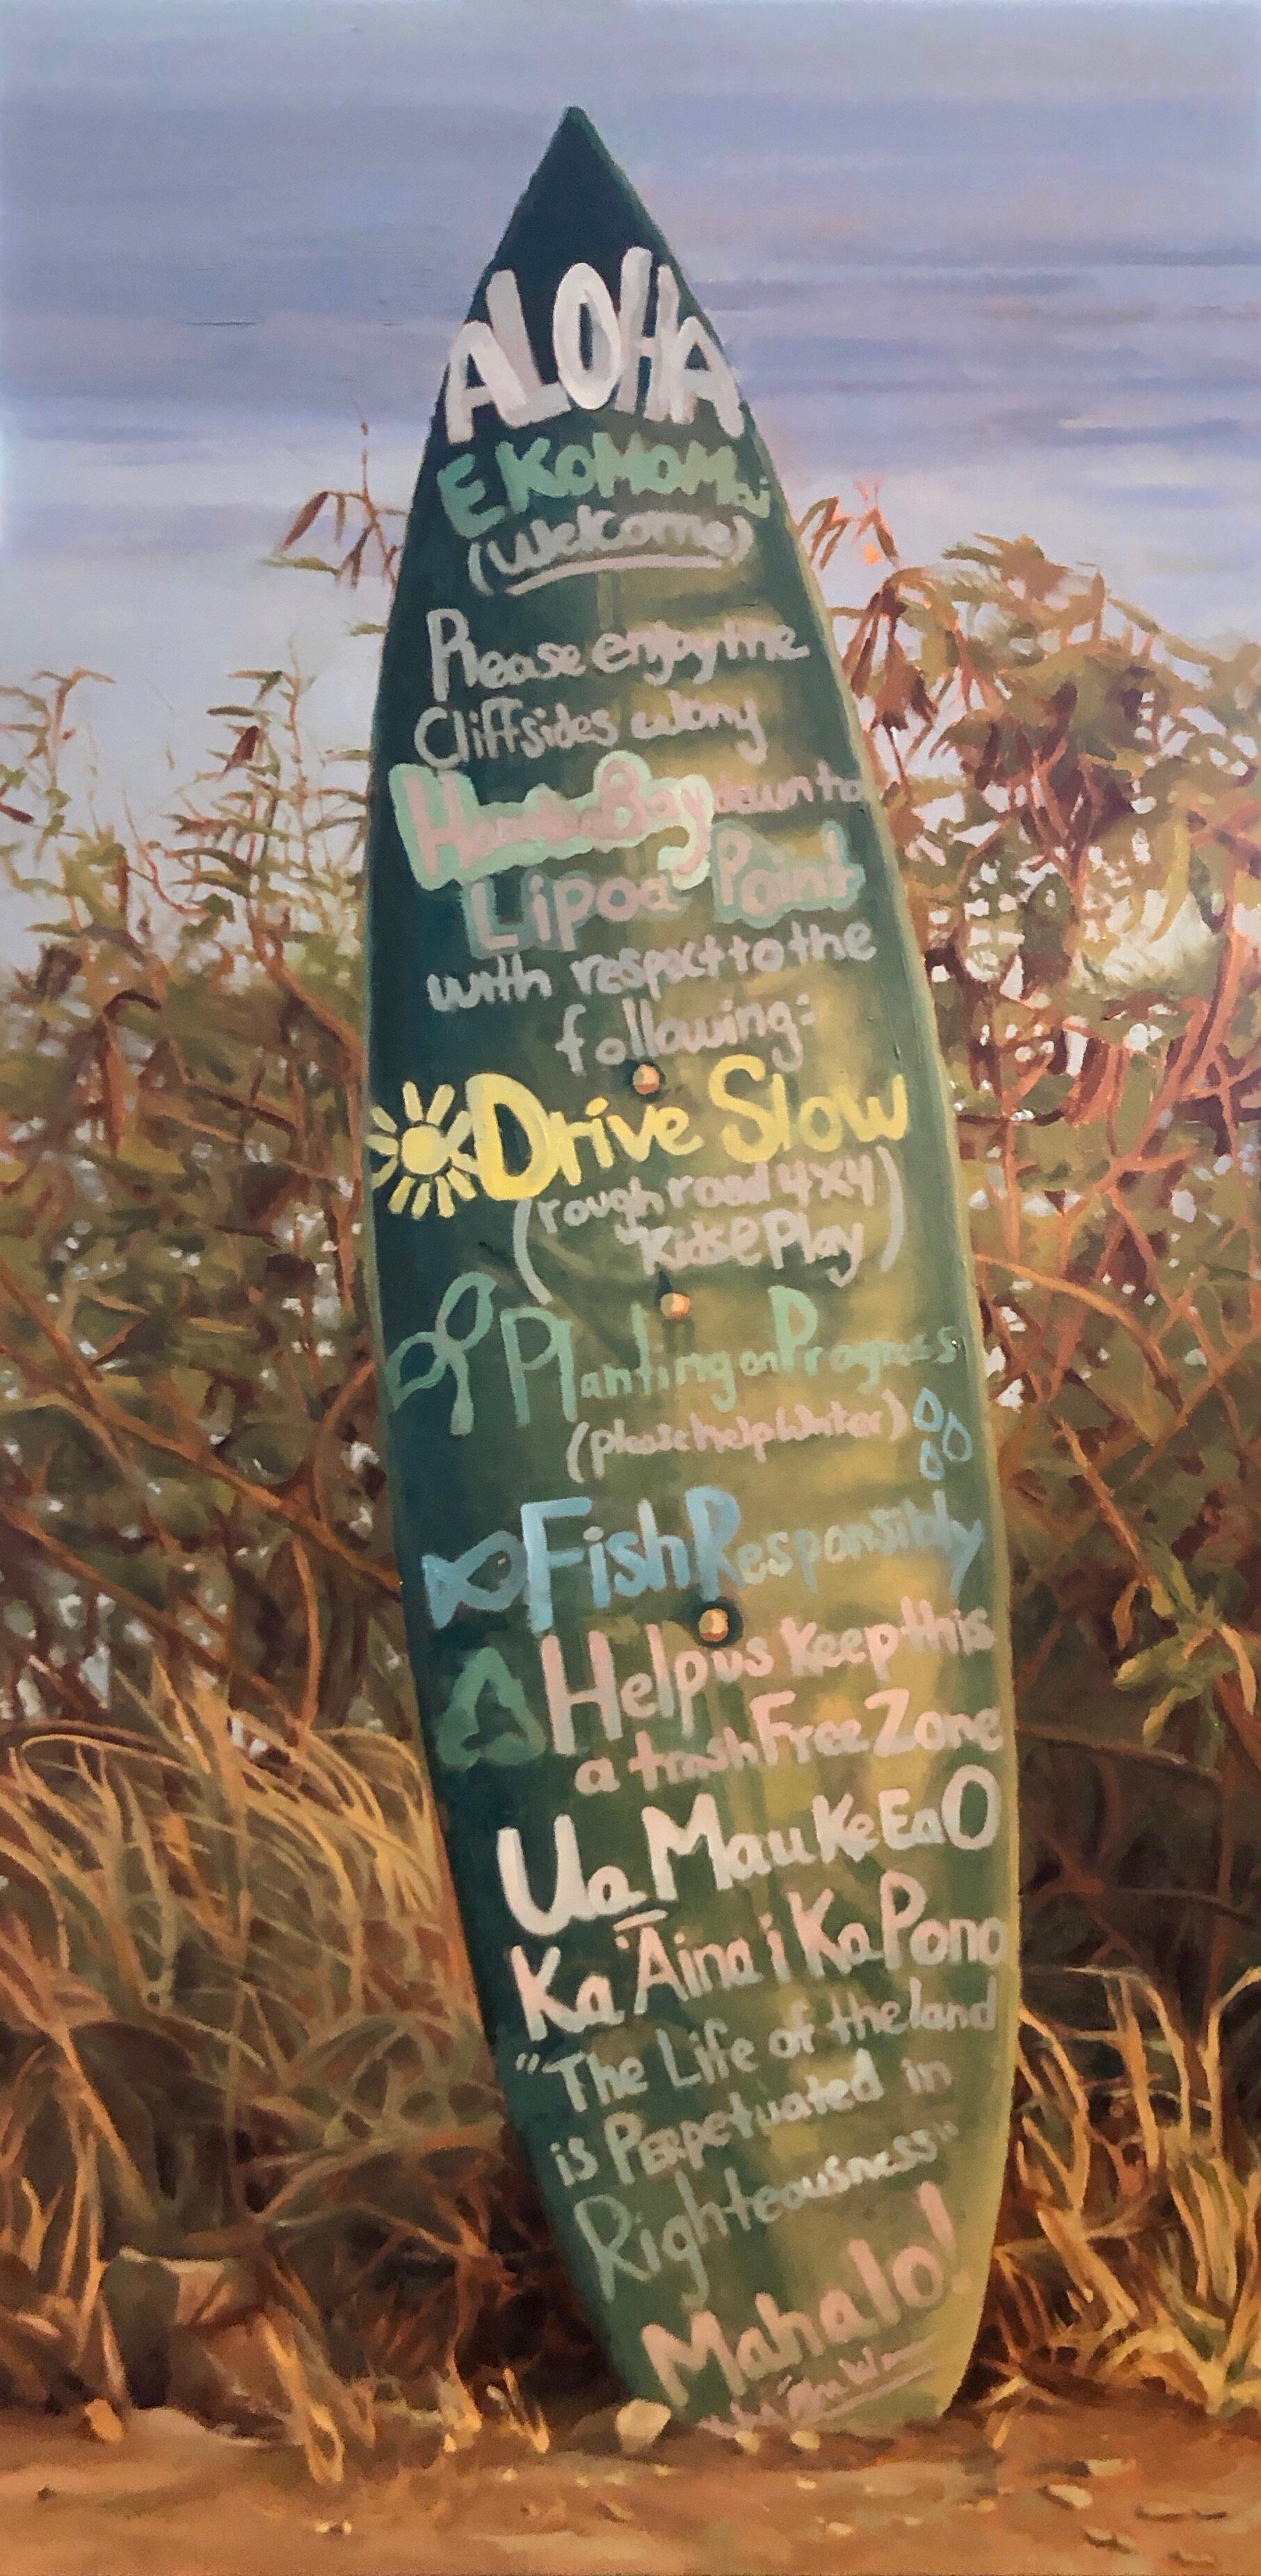 ALOHA
E KOMOMai
(Welcome)
Please enjoy the
Cliffsides along
Bay down to
Lipoa Point
with respect to the
following:
Drive Slow
(rough road 4x4
Kids@Play)
Planting on Progress
(please help Water)
Fish Responsibly
Help us keep this
a trash Free Zone
Ua Mau Ke Ea O
Ka 'Āina i Ka Pono
"The Life of the land
is Perpetuated in
Righteousness"
Mahalo!